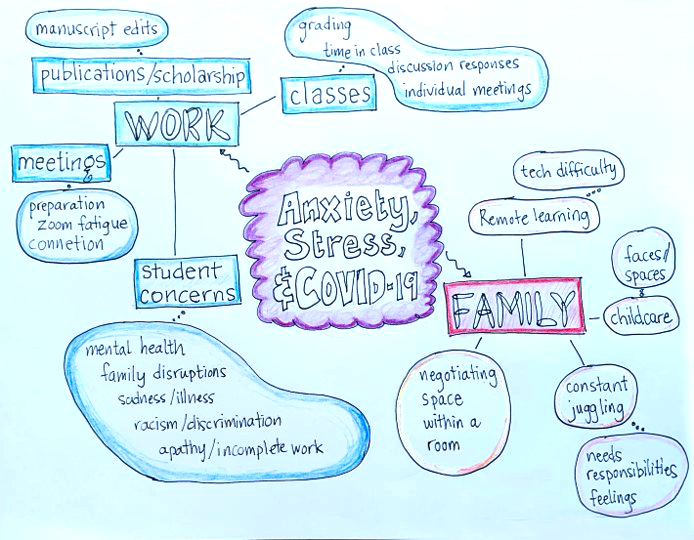 manuscript edits
publications/scholarship
WORK
meetings
preparation
zoom fatigue
connetion
student
concerns
mental health
family disruptions
sadness/illness
racism/discrimination
apathy/incomplete work
classes
grading
time in class
discussion responses
individual meetings
Anxiety,
Stress,
& COVID-19
FAMILY
tech difficulty
Remote learning
faces/
spaces
childcare
constant
juggling
needs
responsibilities
feelings
negotiating
space
within a
room